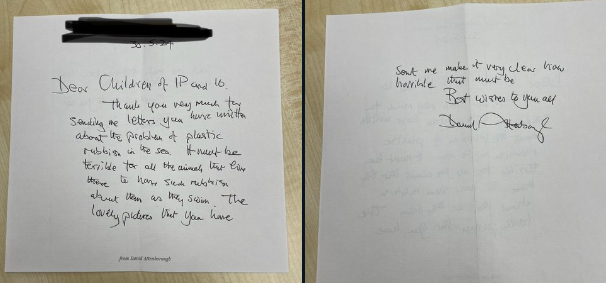 30.5.24
Dear Children of 1P and 1O.
Thank you very much for
sending me letters you have written
about the problem of plastic
rubbish in the sea. It must be
terrible for all the animals that live
there to have such rubbish
about them as they swim. The
lovely pictures that you have
from David Attenborough
sent me make it very clear how
horrible that must be
Best wishes to you all
David Attenborough